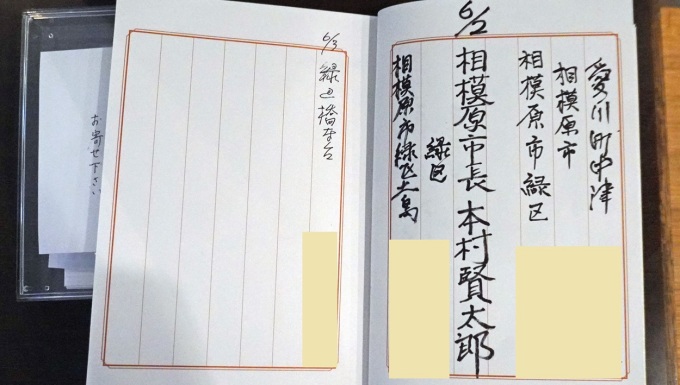 愛川町中津
相模原市
相模原市緑区
6/2 相模原市長 本村賢太郎
緑区
相模原市緑区大島
6/3 緑区橋本台
お寄せ下さい